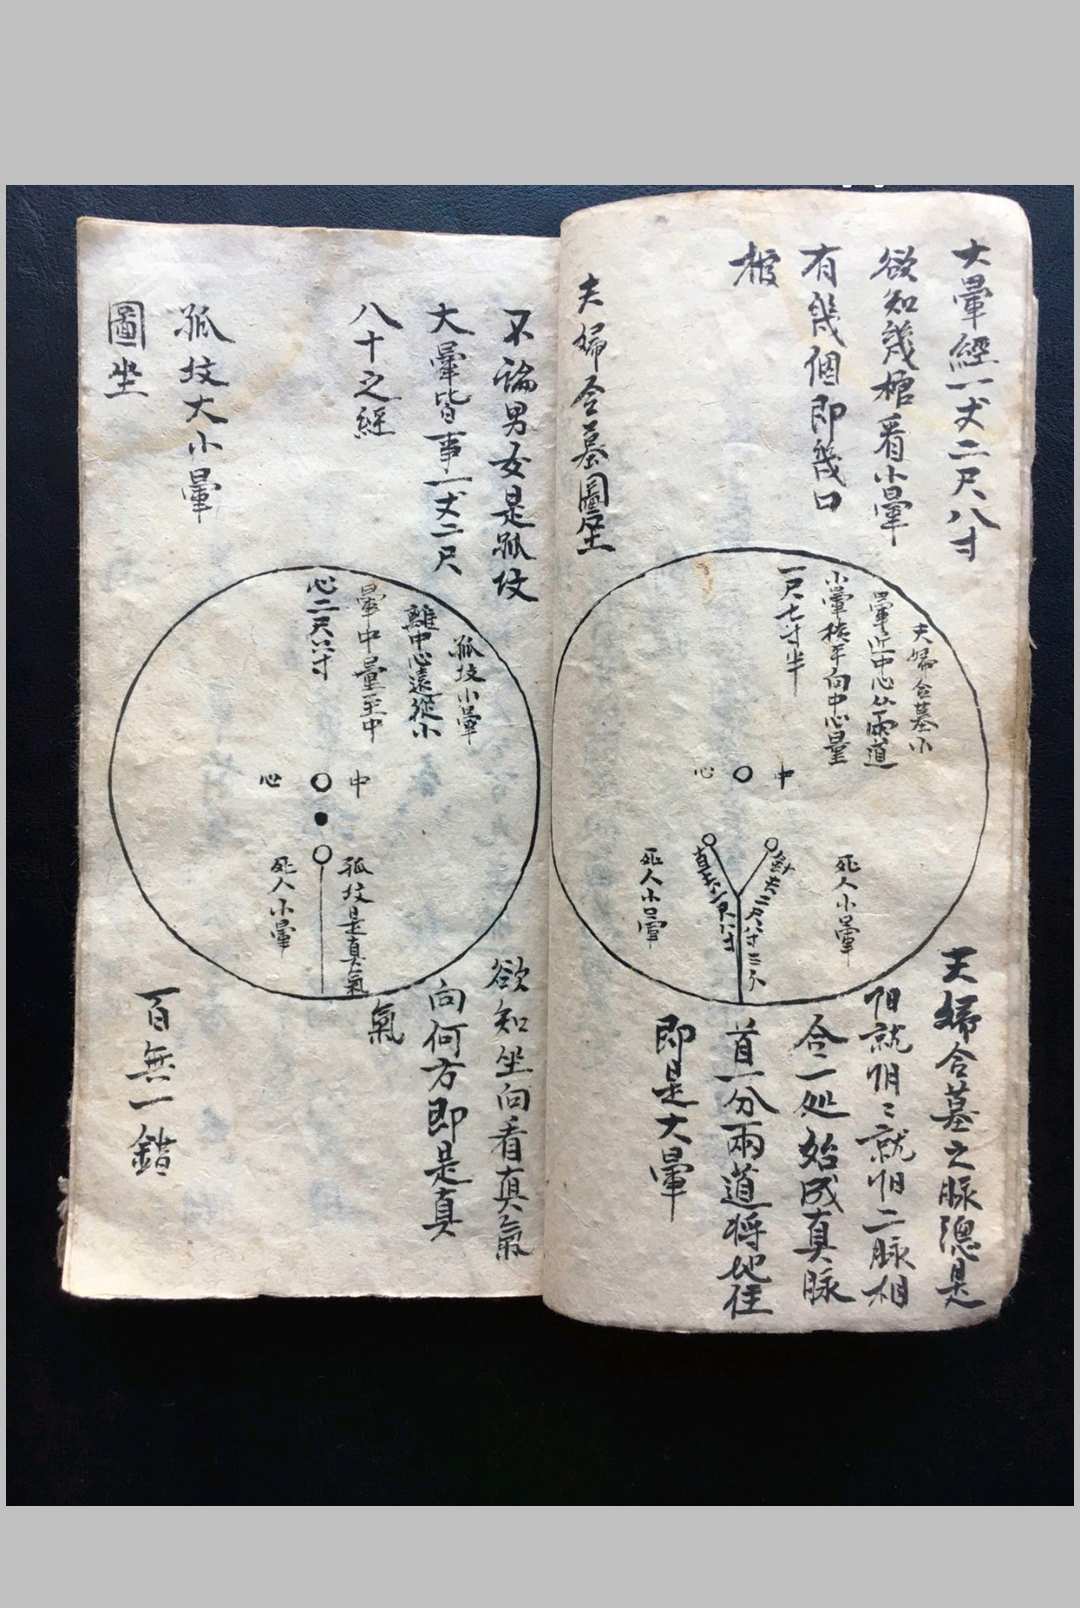 大暈經一丈二尺八寸
欲知幾棺看小暈
有幾個即幾口
棺
夫婦合墓圖坐
夫婦合墓小
暈近中心分兩道
小暈横平向中心量
一尺七寸半
中
心
死人小暈
斜去二尺八寸三分
直去二尺八寸
死人小暈
夫婦合墓之脉總是
阳就阴阴就阳二脉相
合一处始成真脉
首一分兩道將地往
即是大暈
不論男女是孤坟
大暈皆事一丈二尺
八十之經
孤坟大小暈
圖坐
孤坟小暈
離中心遠從小
暈中量至中
心二尺六寸
中
心
孤坟是真氣
死人小暈
欲知坐向看真氣
向何方即是真
氣
百無一錯